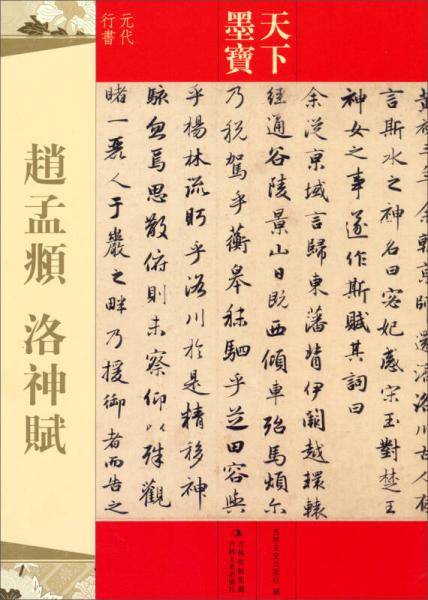 天下
墨寶
元代
行書
趙孟頫 洛神賦
言斯水之神名曰宓妃感宋玉對楚王
神女之事遂作斯賦其詞曰
余從京域言歸東藩背伊闕越轘轅
經通谷陵景山日既西傾車殆馬煩尔
乃稅駕乎蘅皋秣駟乎芝田容與
乎楊林流眄乎洛川於是精移神
駭忽焉思散俯則未察仰以殊觀
睹一麗人于巖之畔乃援御者而告之
吉林文史出版社 編
吉林出版集團
吉林文史出版社